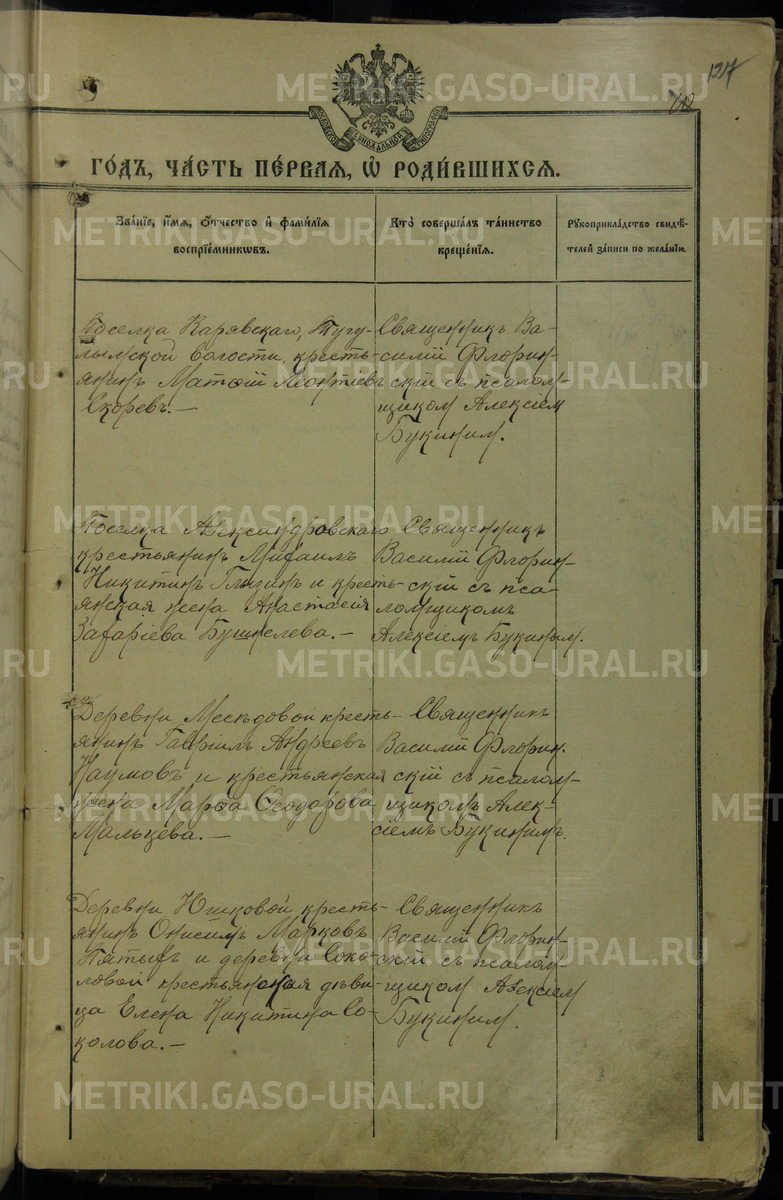 127
ГОДЪ, ЧАСТЬ ПЕРВАЯ, Ѡ РОДИВШИХСЯ.
Званіе, имя, отчество и фамилія
воспріемниковъ.
Кто совершалъ таинство
крещенія.
Рукоприкладство свидѣ-
телей записи по желанію.
Поселка Карявскаго, Тугу-
лымской волости, кресть-
янинъ Матѳій Леонтіевъ
Скоревъ.—
Священникъ Ва-
силій Флорин-
скій съ псалом-
щиком Алексіем
Букиним.
Поселка Александровскаго
крестьянинъ Михаилъ
Никитинъ Глызинъ и кресть-
янская жена Анастасія
Захаріева Бушкелева.—
Священникъ
Василій Флорин-
скій съ пса-
ломщикомъ
Алексіемъ Букиным.
Деревни Месѣдовой кресть-
янинъ Гавріилъ Андреевъ
Наумовъ и крестьянская
жена Марѳа Ѳеодорова
Мальцева.—
Священникъ
Василій Флорин.
скій съ псалом-
щикомъ Алек-
сіемъ Букинимъ.
Деревни Юшковой кресть-
янинъ Онисимъ Марковъ
Пятыхъ и деревни Соко-
ловой крестьянская дѣви-
ца Елена Никитина Со-
колова.—
Священникъ
Василій Флорин-
скій съ псалом-
щиком Алексіем
Букиним.
METRIKI.GASO-URAL.RU